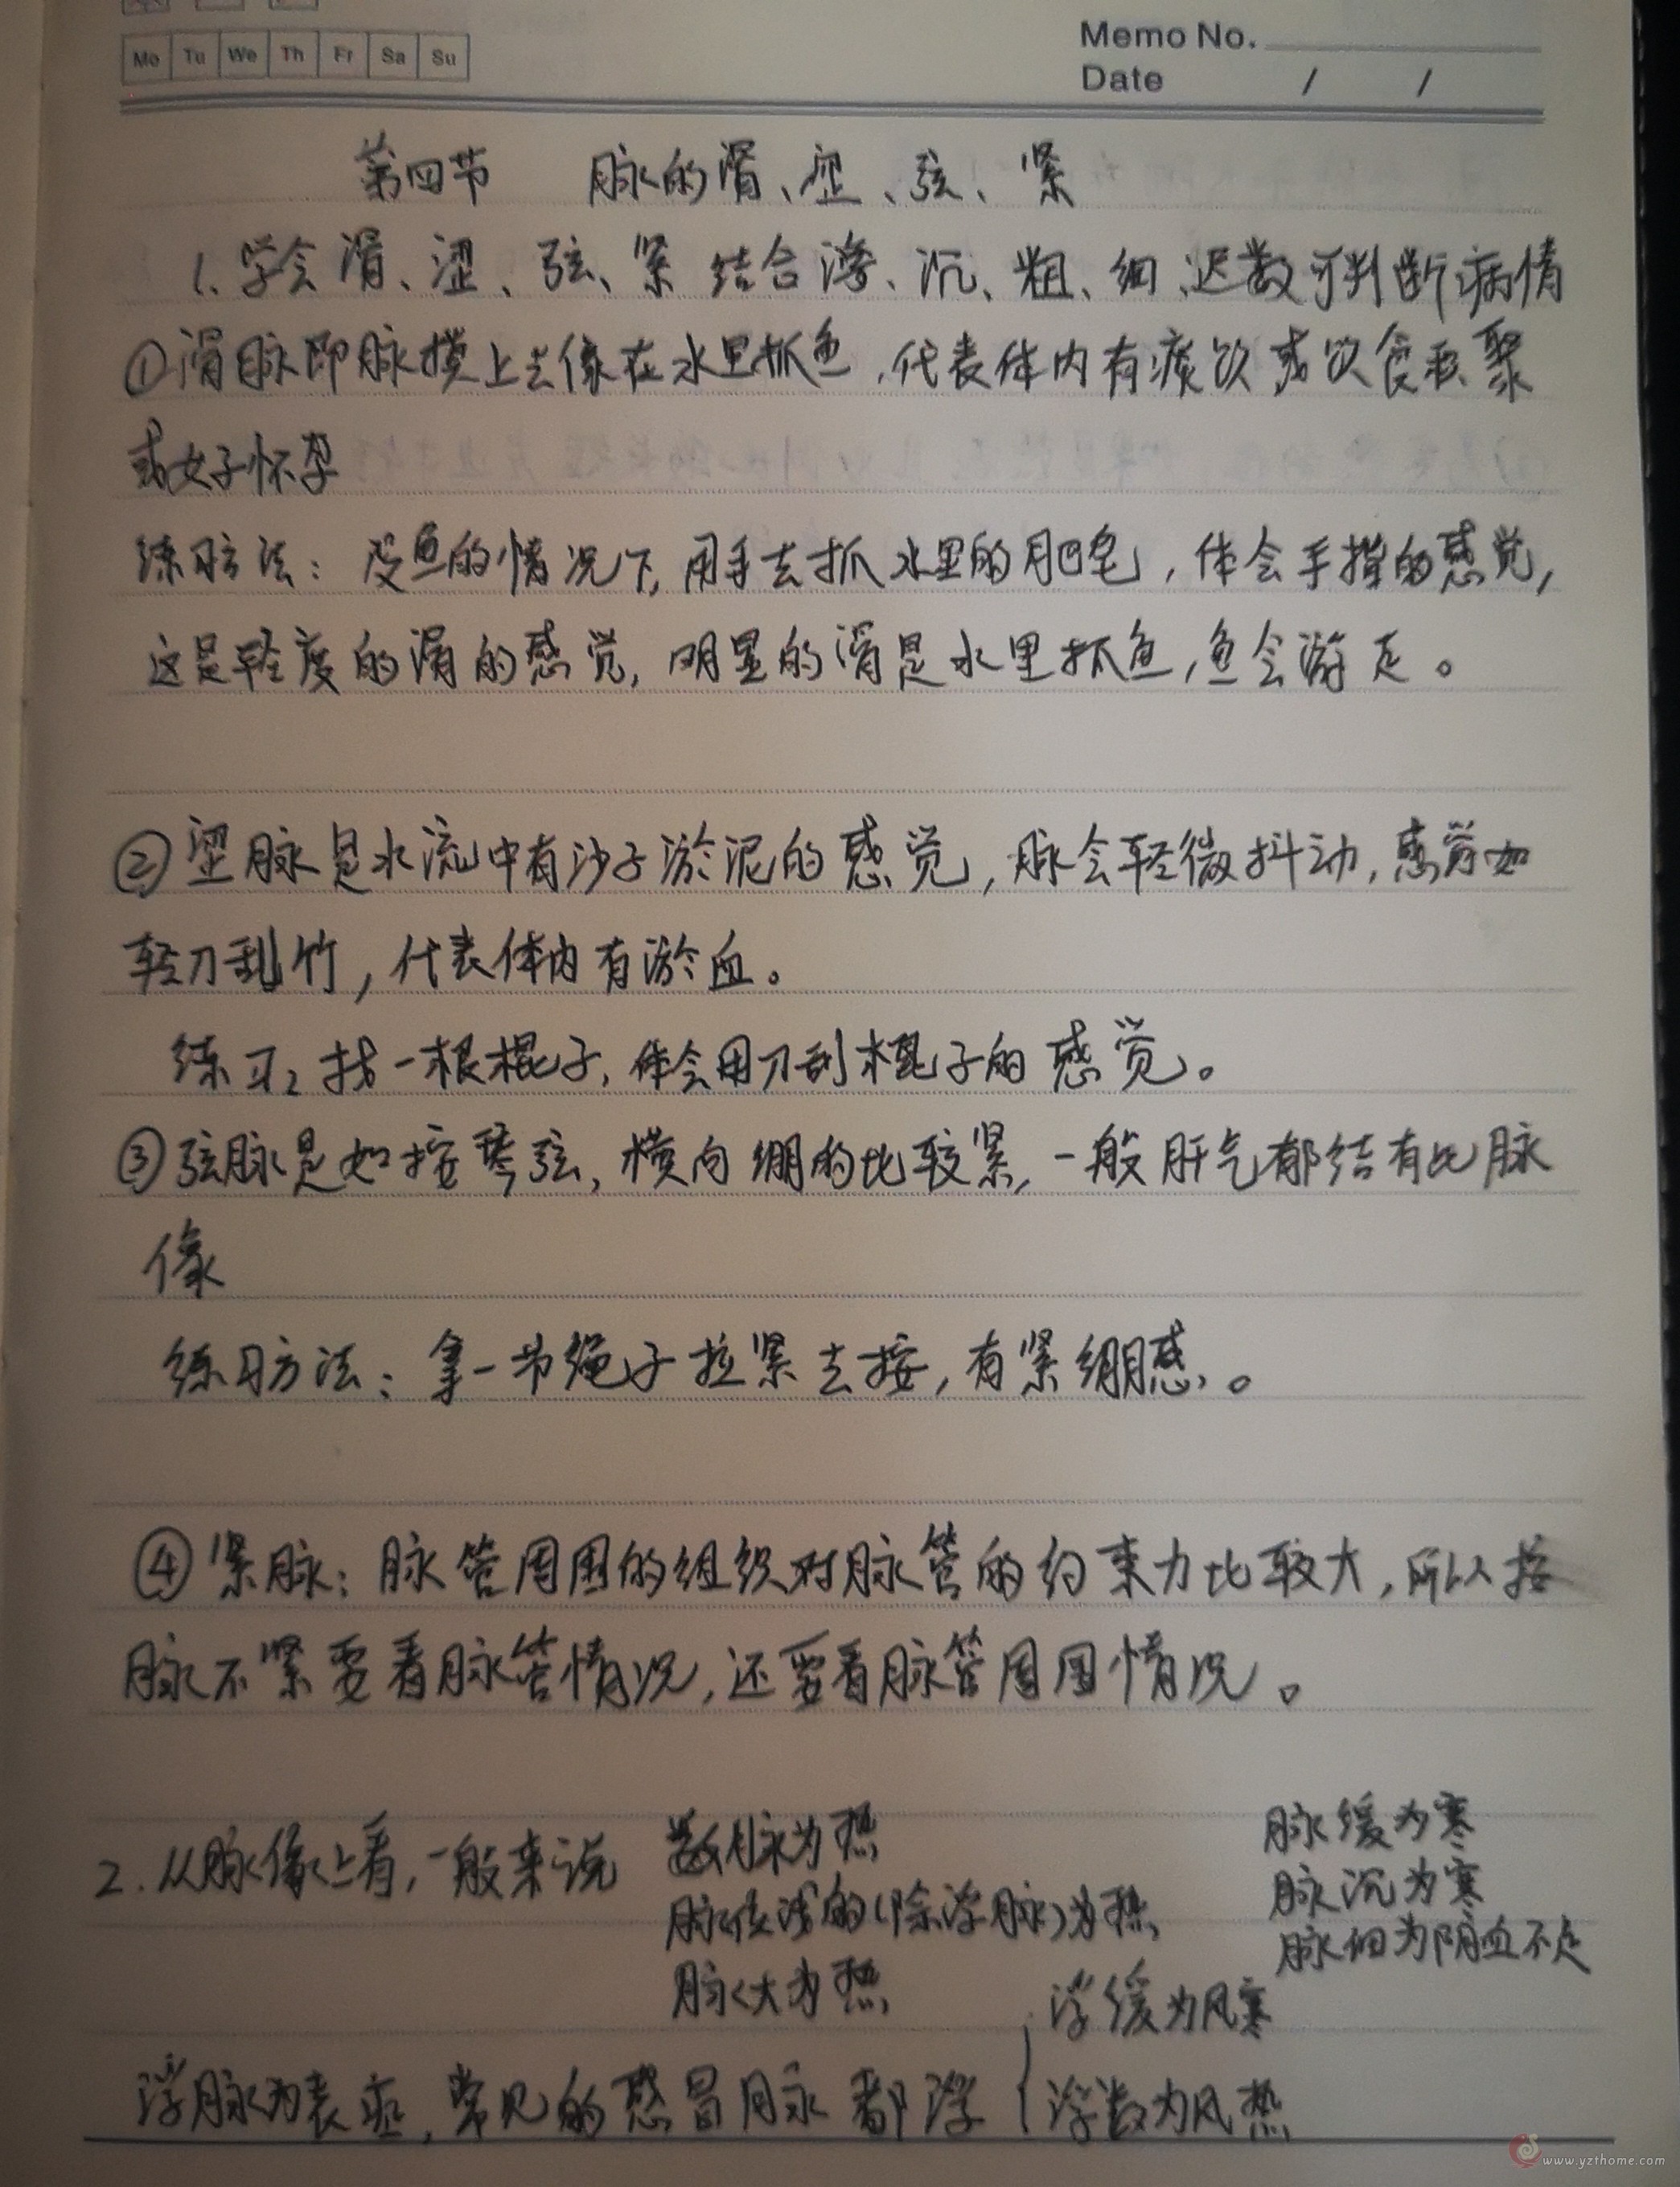 Mo Tu We Th Fr Sa Su
Memo No.
Date / /
第四节 脉的滑、涩、弦、紧
1.学会滑、涩、弦、紧 结合浮、沉、粗、细、迟数可判断病情
①滑脉即脉摸上去像在水里抓鱼,代表体内有痰饮或饮食积聚
或女子怀孕
练习方法:没鱼的情况下,用手去抓水里的肥皂,体会手指的感觉,
这是轻度的滑的感觉,明显的滑是水里抓鱼,鱼会游走。
②涩脉是水流中有沙子淤泥的感觉,脉会轻微抖动,感觉如
轻刀刮竹,代表体内有淤血。
练习:找一根棍子,体会用刀刮木棍子的感觉。
③弦脉是如按琴弦,横向绷的比较紧,一般肝气郁结有此脉
像
练习方法:拿一节绳子拉紧去按,有紧绷感。
④紧脉:脉管周围的组织对脉管的约束力比较大,所以按
脉不紧要看脉管情况,还要看脉管周围情况。
2.从脉像上看,一般来说 数脉为热
脉位浅的(除浮脉)为热
脉大为热
脉缓为寒
脉沉为寒
脉细为阴血不足
浮脉为表症,常见的感冒脉都浮
浮缓为风寒
浮数为风热
www.yzthome.com